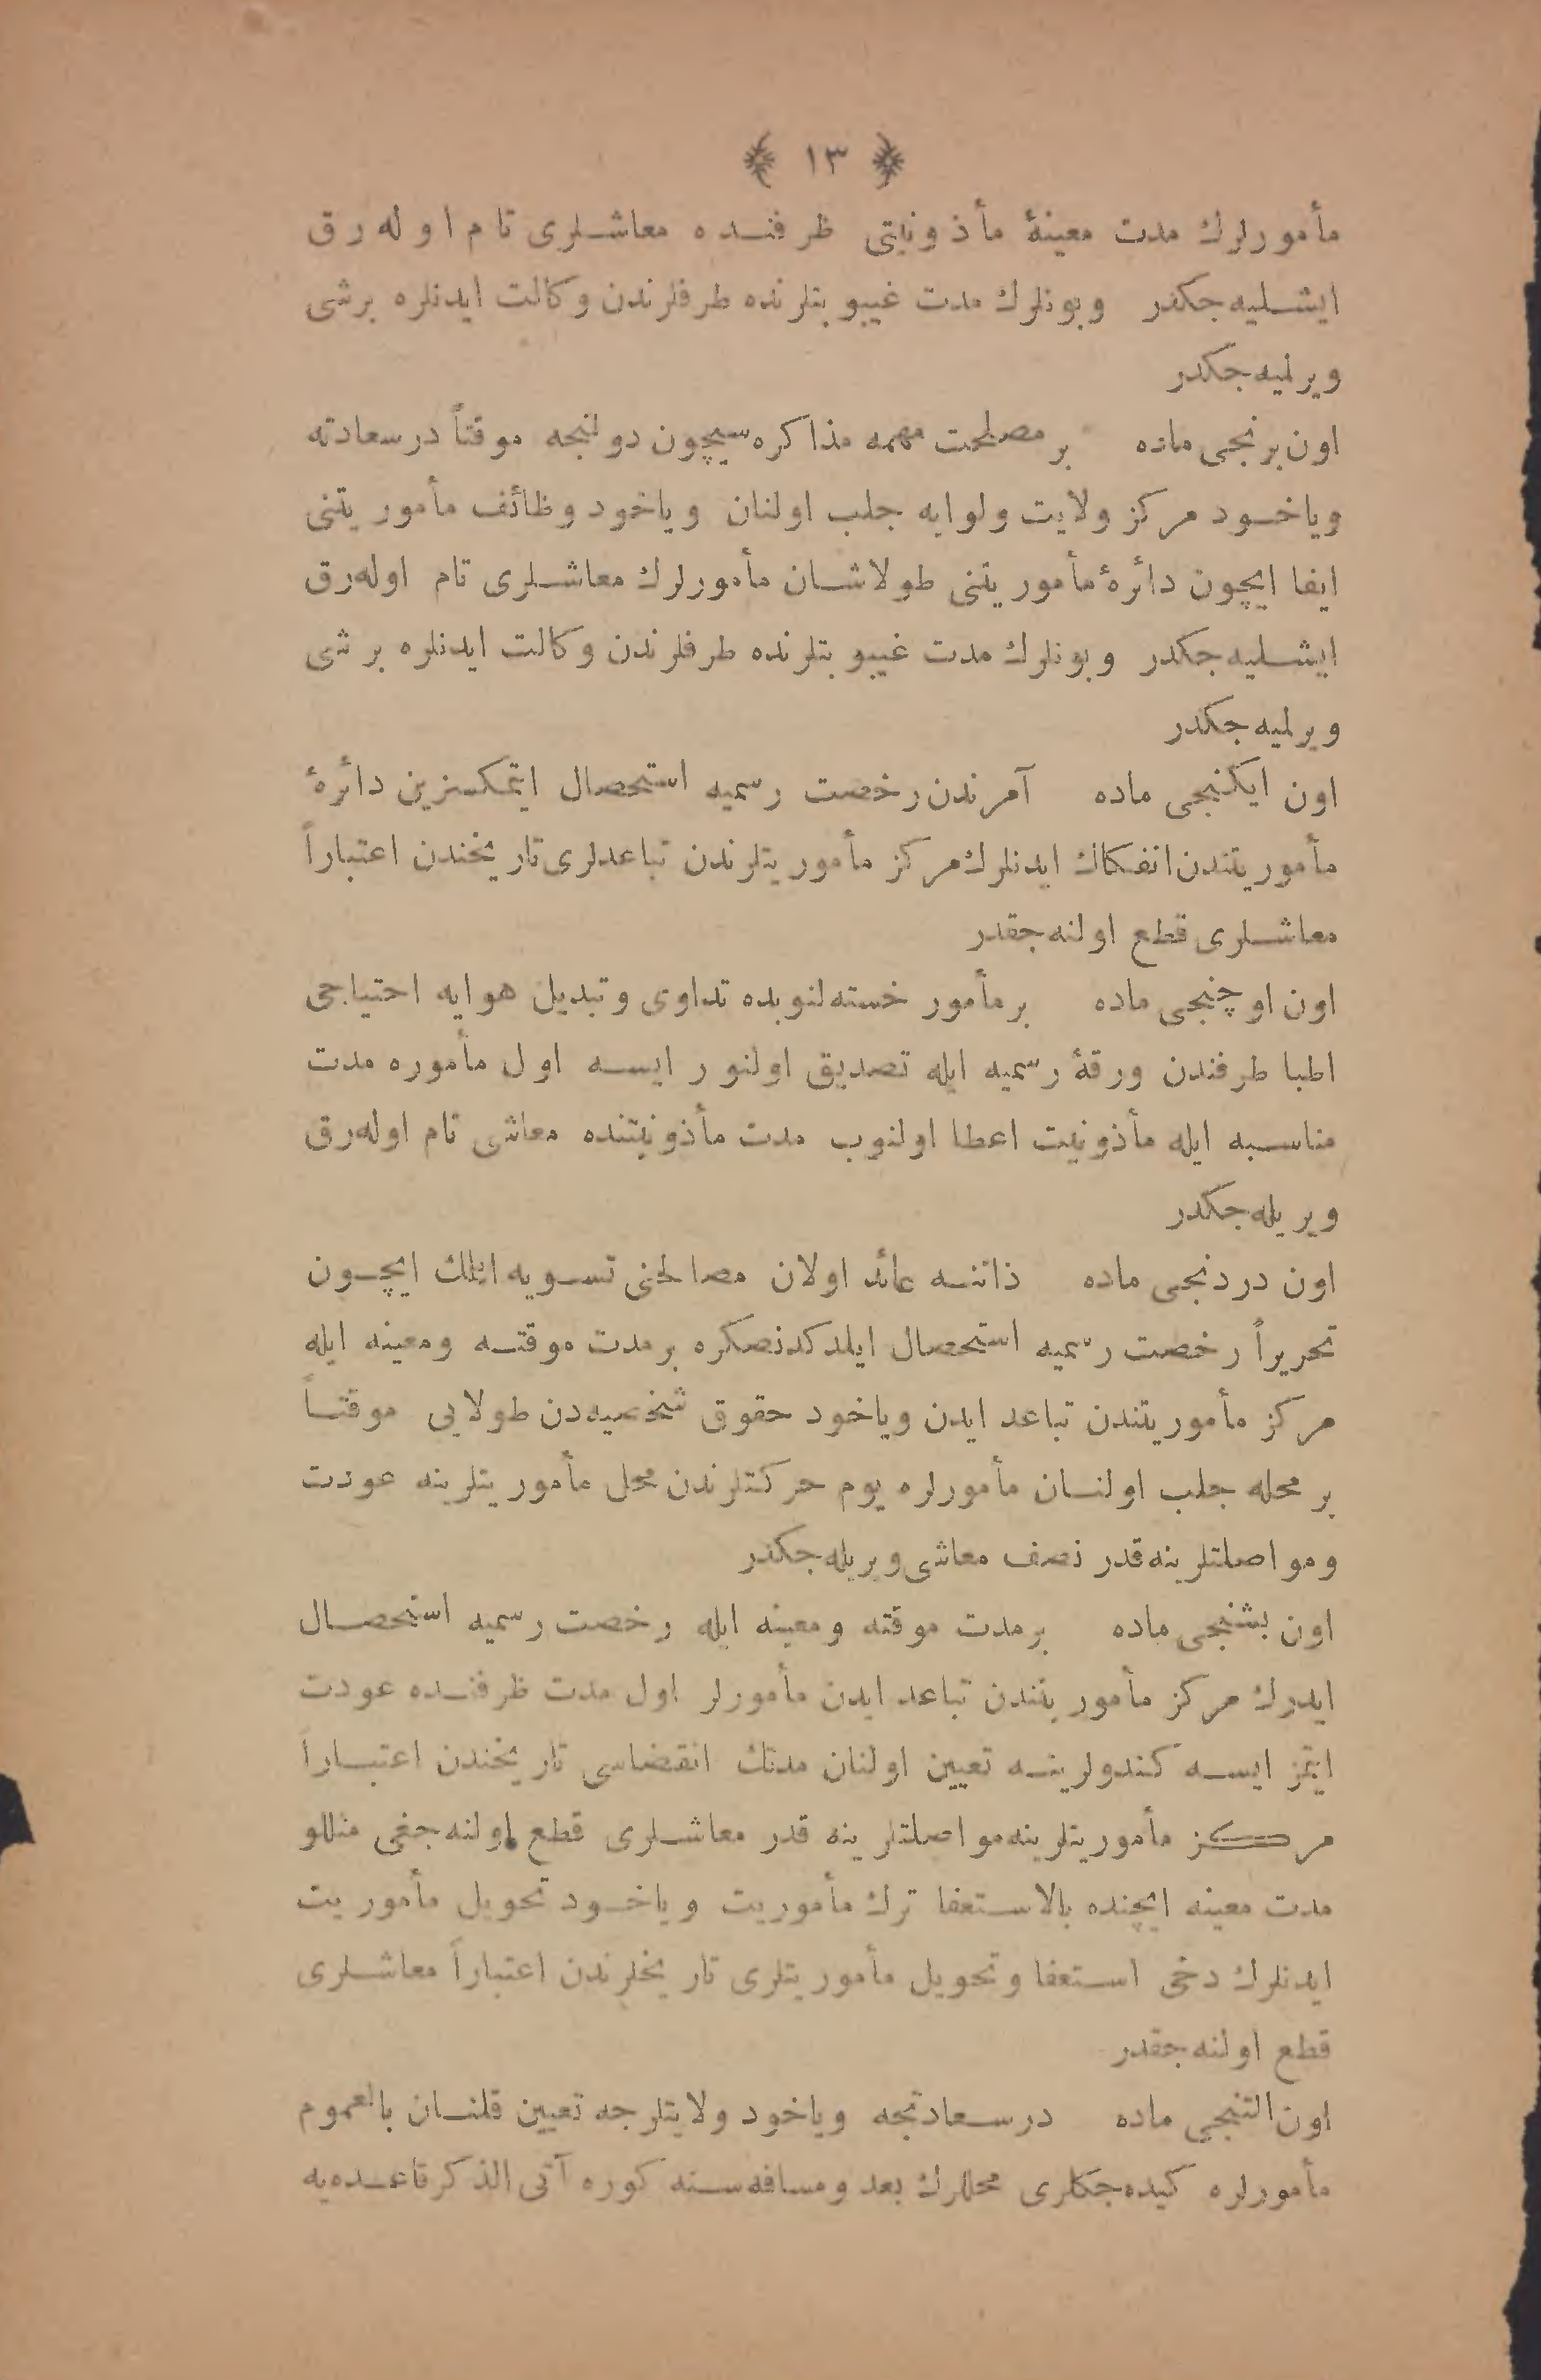 ﴿ ١٣ ﴾
مأمورلرك مدت معينهٔ مأذونيتى ظرفنده معاشلرى تام اوله‌رق
ايشليه‌جكدر وبونلرك مدت غيبوبتلرنده طرفلرندن وكالت ايدنلره برشى
ويرلميه‌جكدر
اون برنجى ماده بر مصلحت مهمه مذاكره‌سيچون دولتجه موقتاً درسعادته
وياخود مركز ولايت ولوايه جلب اولنان وياخود وظائف مأموريتنى
ايفا ايچون دائرهٔ مأموريتنى طولاشان مأمورلرك معاشلرى تام اوله‌رق
ايشليه‌جكدر وبونلرك مدت غيبوبتلرنده طرفلرندن وكالت ايدنلره برشى
ويرلميه‌جكدر
اون ايكنجى ماده آمرندن رخصت رسميه استحصال ايتمكسزين دائرهٔ
مأموريتندن انفكاك ايدنلرك مركز مأموريتلرندن تباعدلرى تاريخندن اعتباراً
معاشلرى قطع اولنه‌جقدر
اون اوچنجى ماده بر مأمور خسته‌لنوبده تداوى وتبديل هوايه احتياجى
اطبا طرفندن ورقهٔ رسميه ايله تصديق اولنور ايسه اول مأموره مدت
مناسبه ايله مأذونيت اعطا اولنوب مدت مأذونيتنده معاشى تام اوله‌رق
ويريله‌جكدر
اون دردنجى ماده ذاتنه عائد اولان مصالحنى تسويه ايتمك ايچون
تحريراً رخصت رسميه استحصال ايلدكدنصكره برمدت موقته ومعينه ايله
مركز مأموريتندن تباعد ايدن وياخود حقوق شخصيه‌دن طولايى موقتاً
بر محله جلب اولنان مأمورلره يوم حركتلرندن محل مأموريتلرينه عودت
ومواصلتلرينه قدر نصف معاشى ويريله‌جكدر
اون بشنجى ماده برمدت موقته ومعينه ايله رخصت رسميه استحصال
ايدرك مركز مأموريتندن تباعد ايدن مأمورلر اول مدت ظرفنده عودت
ايتمز ايسه كندولرينه تعيين اولنان مدتك انقضاسى تاريخندن اعتباراً
مركز مأموريتلرينه مواصلتلرينه قدر معاشلرى قطع اولنه‌جغى مثللو
مدت معينه ايچنده بالاستعفا ترك مأموريت وياخود تحويل مأموريت
ايدنلرك دخى استعفا وتحويل مأموريتلرى تاريخلرندن اعتباراً معاشلرى
قطع اولنه‌جقدر
اون التنجى ماده درسعادتجه وياخود ولايتلرجه تعيين قلنان بالعموم
مأمورلره كيده‌جكلرى محللرك بعد ومسافه‌سنه كوره آتى الذكر قاعده‌يه